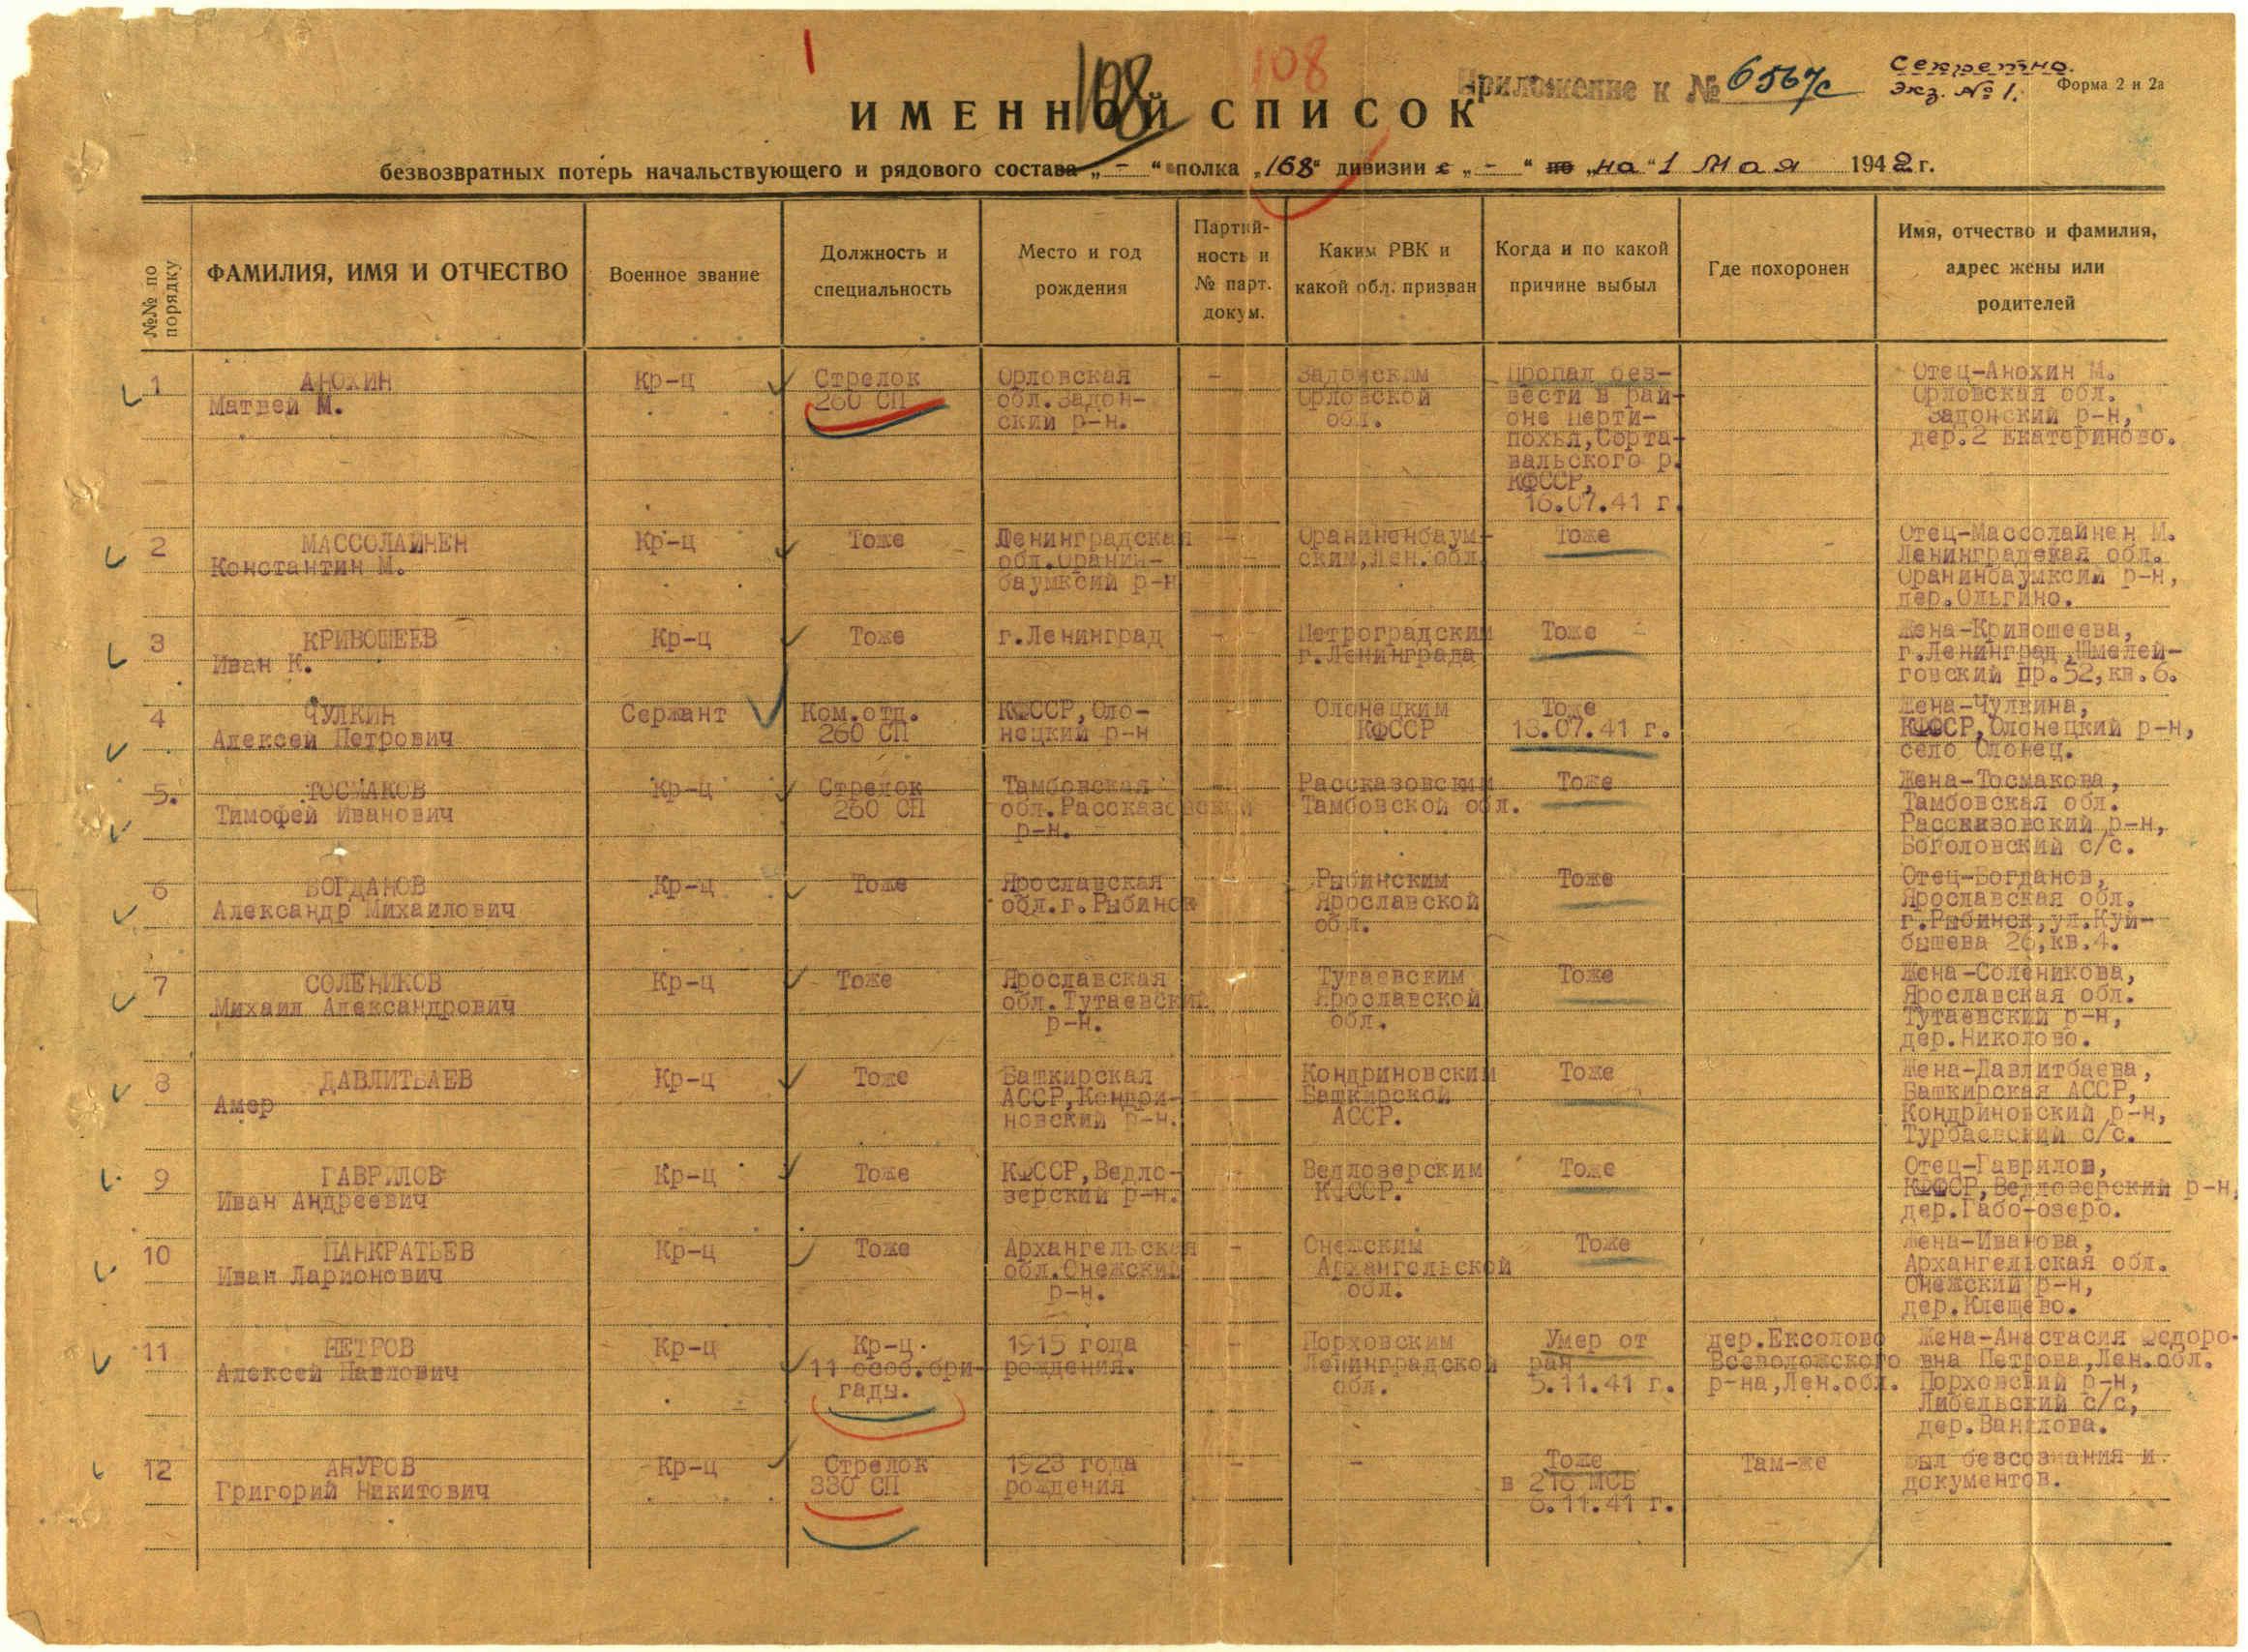 108
108
Приложение к № 6567с
Секретно.
Экз. № 1.
Форма 2 и 2а
ИМЕННОЙ СПИСОК
безвозвратных потерь начальствующего и рядового состава „ - “ полка „168“ дивизии с „ - “ по „на“ 1 Мая 1942 г.
№№ по порядку
ФАМИЛИЯ, ИМЯ И ОТЧЕСТВО
Военное звание
Должность и
специальность
Место и год
рождения
Партий-
ность и
№ парт.
докум.
Каким РВК и
какой обл. призван
Когда и по какой
причине выбыл
Где похоронен
Имя, отчество и фамилия,
адрес жены или
родителей
1
АНОХИН
Матвей М.
Кр-ц
Стрелок
260 СП
Орловская
обл.Задон-
ский р-н.
-
Задонским
Орловской
обл.
Пропал без-
вести в рай-
оне Перти-
похья,Сорта-
вальского р.
КФССР,
16.07.41 г.
Отец-Анохин М.
Орловская обл.
Задонский р-н,
дер.2 Екатериново.
2
МАССОЛАЙНЕН
Константин М.
Кр-ц
Тоже
Ленинградская
обл.Оранин-
баумксий р-н
-
Ораниненбаум-
ским,Лен.обл.
Тоже
-
Отец-Массолайнен М.
Ленинградская обл.
Оранинбаумксий р-н,
дер.Ольгино.
3
КРИВОШЕЕВ
Иван К.
Кр-ц
Тоже
г.Ленинград
-
Петроградским
г.Ленинграда
Тоже
Жена-Кривошеева,
г.Ленинград,Шмелей-
говский пр.52,кв.6.
4
ЧУЛКИН
Алексей Петрович
Сержант
Ком.отд.
260 СП
КФССР,Оло-
нецкий р-н
-
Олонецким
КФССР
Тоже
13.07.41 г.
Жена-Чулкина,
КФССР,Олонецкий р-н,
село Олонец.
5.
ТОСМАКОВ
Тимофей Иванович
Кр-ц
Стрелок
260 СП
Тамбовская
обл.Рассказовский
р-н.
-
Рассказовским
Тамбовской обл.
Тоже
Жена-Тосмакова,
Тамбовская обл.
Рассказовский р-н,
Боголовский с/с.
6
БОГДАНОВ
Александр Михаилович
Кр-ц
Тоже
Ярославская
обл.г.Рыбинск
Рыбинским
Ярославской
обл.
Тоже
Отец-Богданов,
Ярославская обл.
г.Рыбинск,ул.Куй-
бышева 26,кв.4.
7
СОЛЕНИКОВ
Михаил Александрович
Кр-ц
Тоже
Ярославская
обл.Тутаевский
р-н.
Тутаевским
Ярославской
обл.
Тоже
Жена-Соленикова,
Ярославская обл.
Тутаевский р-н,
дер.Николово.
8
ДАВЛИТБАЕВ
Амер
Кр-ц
Тоже
Башкирская
АССР,Кондри-
новский р-н.
Кондриновским
Башкирской
АССР.
Тоже
Жена-Давлитбаева,
Башкирская АССР,
Кондриновский р-н,
Турбаевский с/с.
9
ГАВРИЛОВ
Иван Андреевич
Кр-ц
Тоже
КФССР,Ведло-
зерский р-н.
Ведлозерским
КФССР.
Тоже
Отец-Гаврилов,
КФССР,Ведлозерский р-н,
дер.Габо-озеро.
10
ПАНКРАТЬЕВ
Иван Ларионович
Кр-ц
Тоже
Архангельская
обл.Онежский
р-н.
-
Онежским
Архангельской
обл.
Тоже
Жена-Иванова,
Архангельская обл.
Онежский р-н,
дер.Клещево.
11
ПЕТРОВ
Алексей Павлович
Кр-ц
Кр-ц.
11 особ.бри-
гады.
1915 года
рождения.
-
Порховским
Ленинградской
обл.
Умер от
ран
5.11.41 г.
дер.Ексолово
Всеволожского
р-на,Лен.обл.
Жена-Анастасия Федоро-
вна Петрова,Лен.обл.
Порховский р-н,
Либельский с/с,
12
АНУРОВ
Григорий Никитович
Кр-ц
Стрелок
330 СП
1923 года
рождения
-
-
Тоже
в 216 МСБ
6.11.41 г.
Там-же
Был безсознания и
документов.